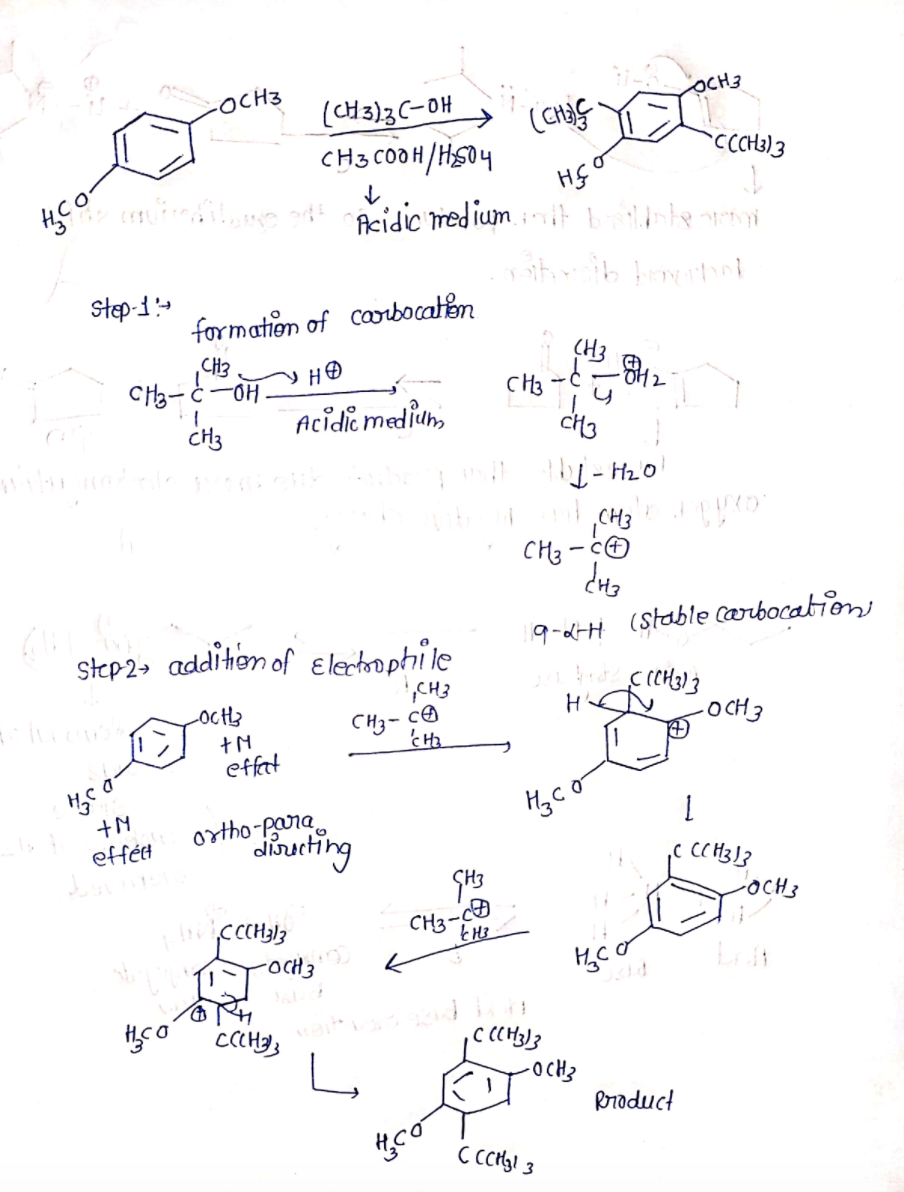 OCH3
(CH3)3C-OH
CH3COOH/H2SO4
↓
Acidic medium
H3CO
(CH3)3C
OCH3
C(CH3)3
H3CO
Step-1:→
formation of carbocation
CH3
CH3-C-OH
CH3
H⊕
Acidic medium
CH3
CH3-C-⊕OH2
CH3
↓-H2O
CH3
CH3-C⊕
CH3
9-α-H (stable carbocation)
Step-2→ addition of Electrophile
OCH3
+M
effect
H3CO
+M
effect
ortho-para
directing
CH3
CH3-C⊕
CH3
C(CH3)3
H
OCH3
⊕
H3CO
C(CH3)3
OCH3
H3CO
CH3
CH3-C⊕
CH3
C(CH3)3
OCH3
⊕
H
H3CO
C(CH3)3
C(CH3)3
OCH3
H3CO
C(CH3)3
Product